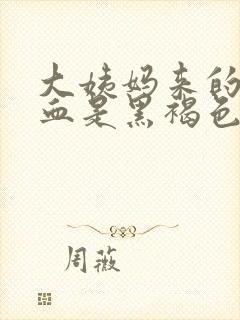 大姨妈来的
血是黑褐色
周薇